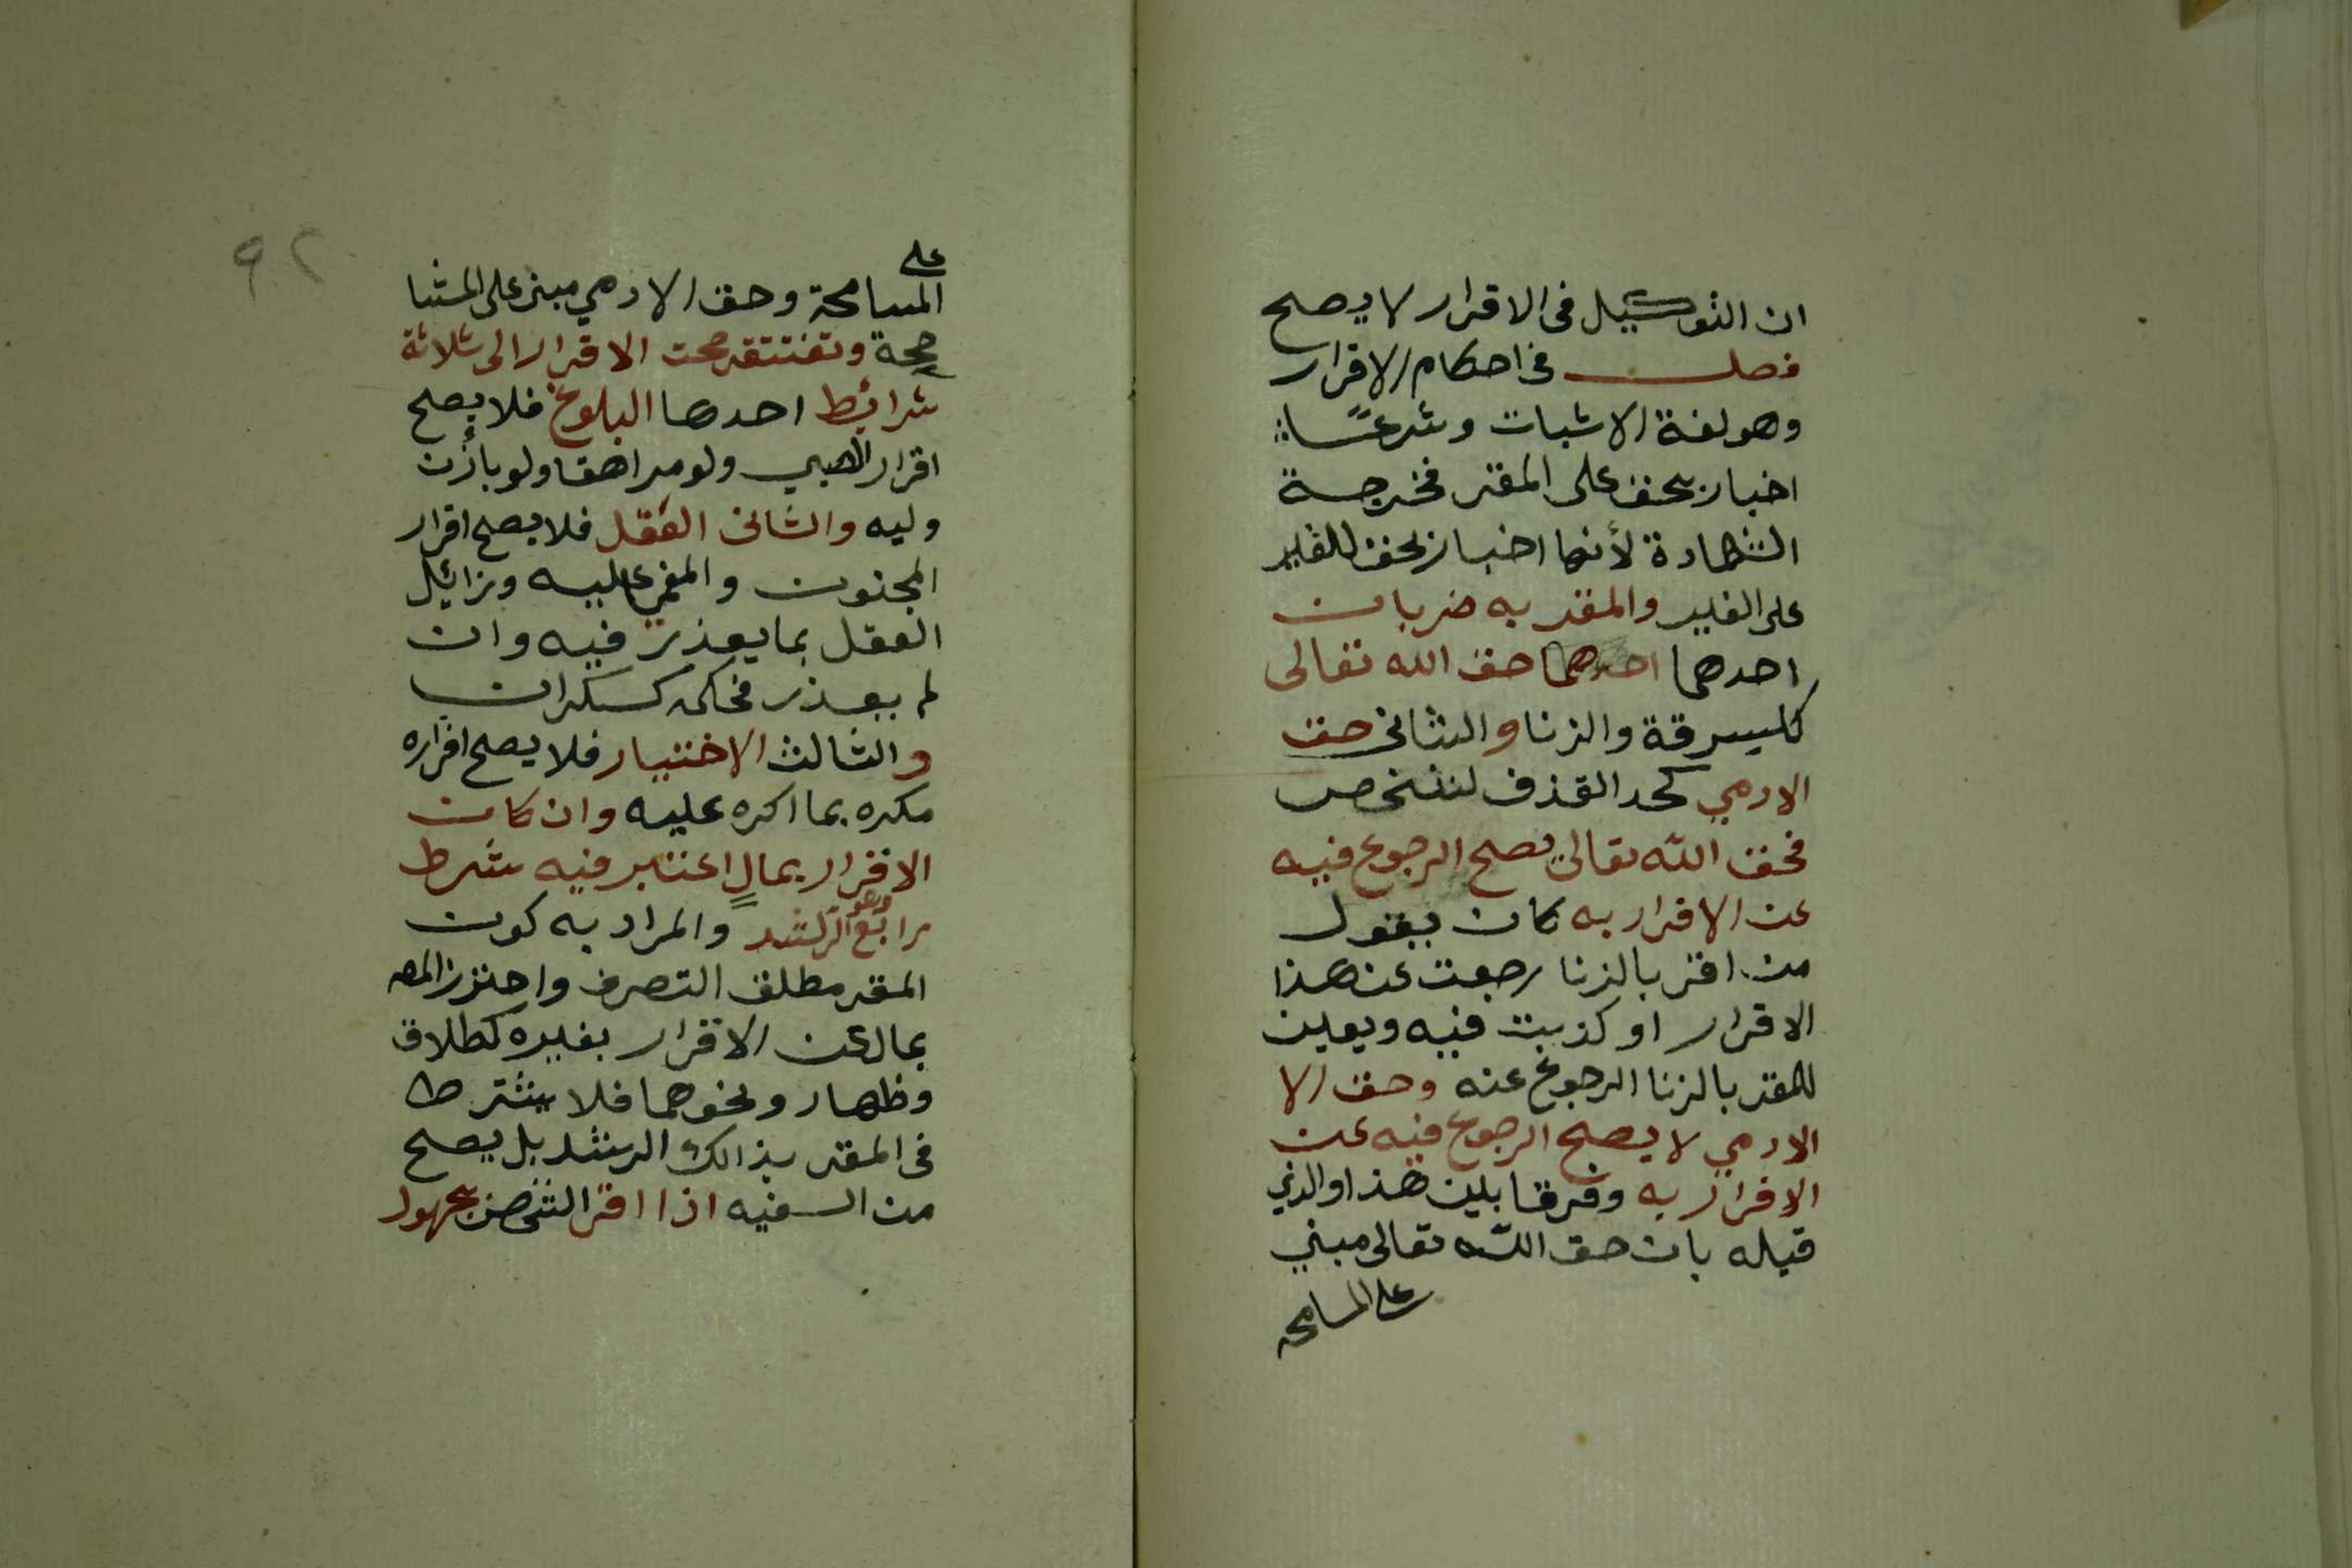 ان التوكيل فى الاقرار لا يصح
فصل فى احكام الاقرار
وهو لغة الاثبات وشرعًا
اخبار بحق على المقر فخرجة
الشهادة لأنها اخبار بحق للغير
على الغير والمقر به ضربان
احدهما احدهما حق الله تعالى
كالسرقة والزنا والثانى حق
الادمي كحد القذف لشخص
فحق الله تعالى يصح الرجوع فيه
عن الاقرار به كان يقول
من اقر بالزنا رجعت عن هذا
الاقرار او كذبت فيه ويعين
للمقر بالزنا الرجوع عنه وحق الا
الادمي لا يصح الرجوع فيه عن
الاقرار به وفرقا بين هذا والذي
قبله بان حق الله تعالى مبني
على المسامحه
٩٢
على
المسامحة وحق الادمي مبنى على المشا
ححة وتفتقر صحت الاقرار الى ثلاثة
شرائط احدها البلوغ فلا يصح
اقرار الصبي ولو مراهقا ولو باذن
وليه والثانى العقل فلا يصح اقرار
المجنون والمغمى عليه وزائل
العقل بما يعذر فيه وان
لم يعذر فحكمه كسكران
والثالث الاختيار فلا يصح اقراره
مكره بما اكره عليه وان كان
الاقرار بمالٍ اعتبر فيه شرط
رابع وهو الرشد والمراد به كون
المقر مطلق التصرف واحترز المص
بمال عن الاقرار بغيره كطلاق
وظهار ونحوهما فلا يشترط
فى المقر بذالك الرشد بل يصح
من السفيه اذا اقر الشخص بمجهول